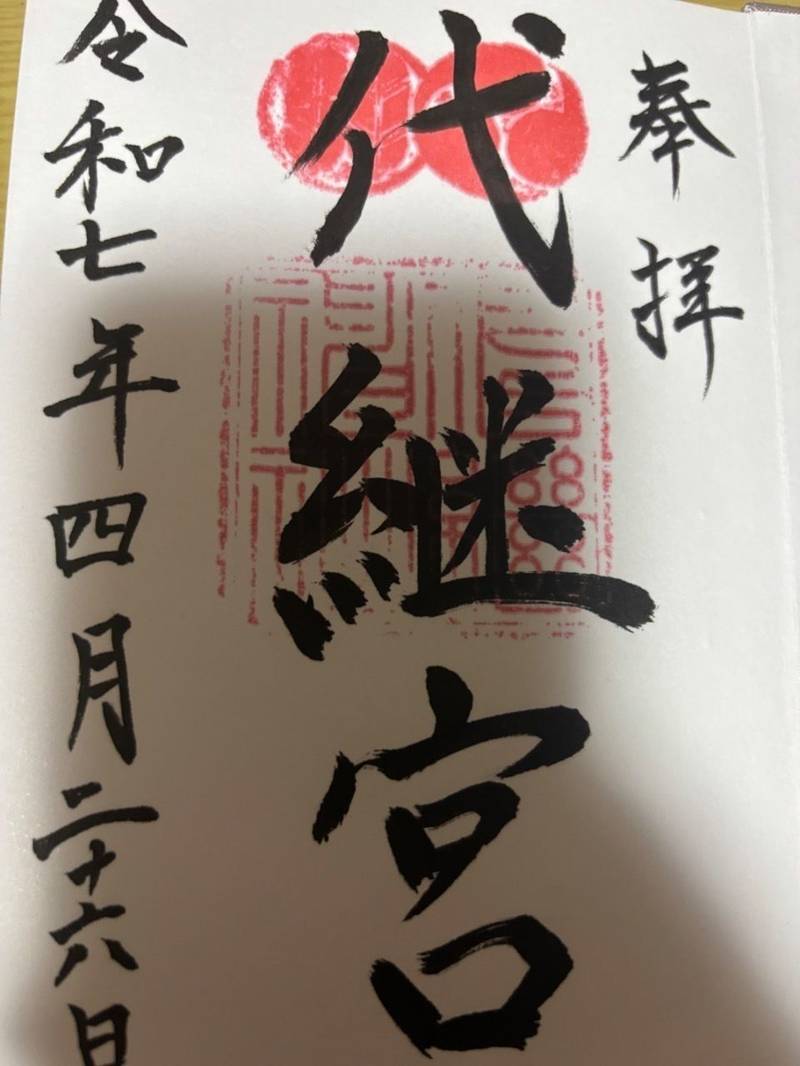 奉拝
代継宮
令和七年四月二十六日